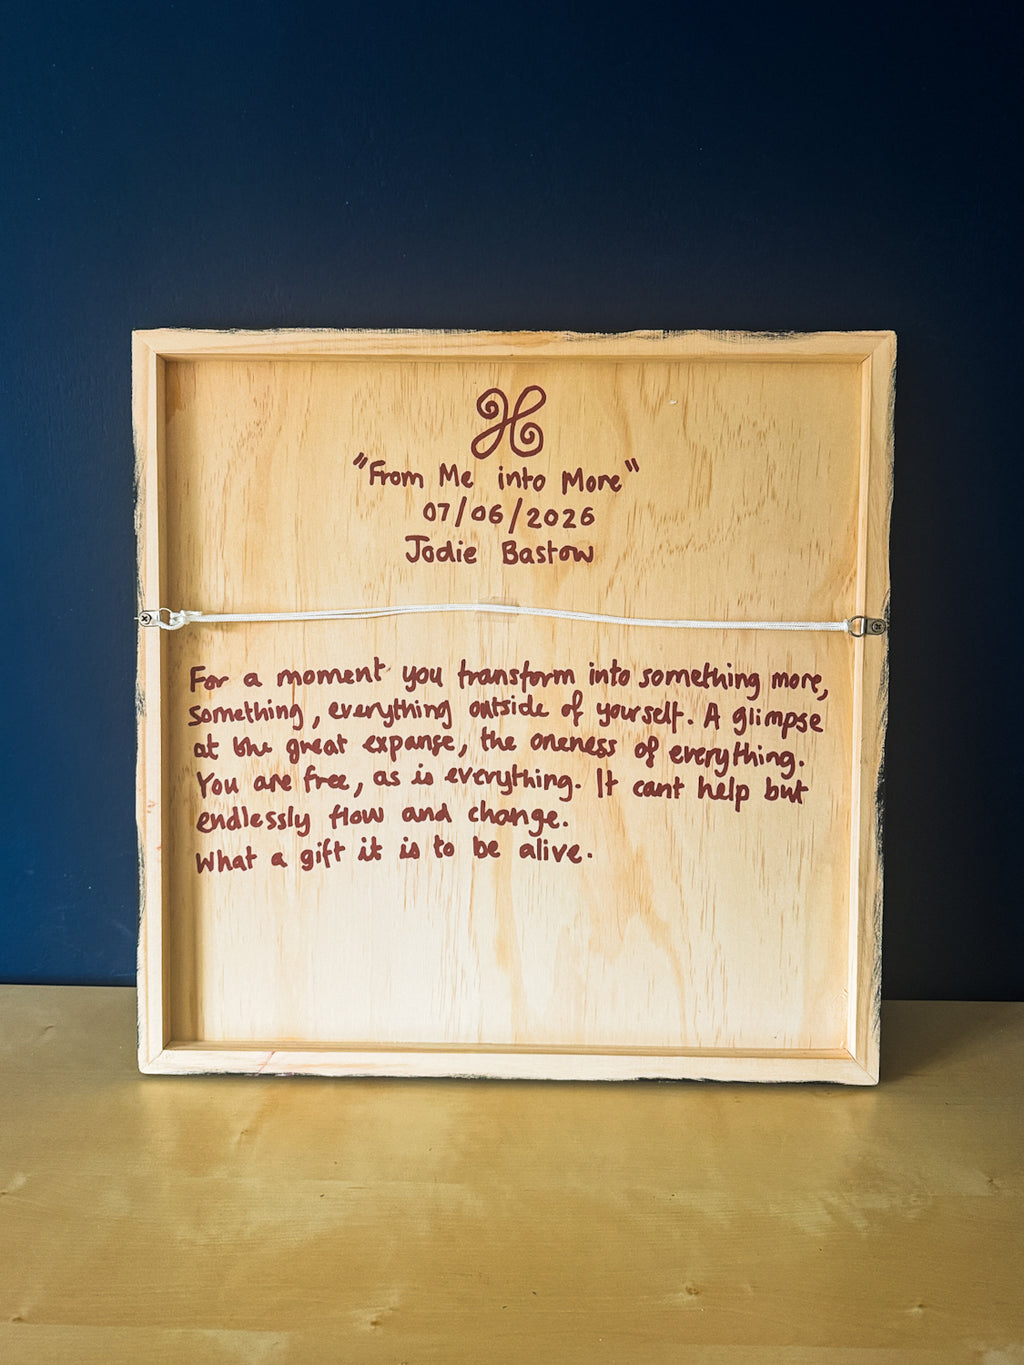 "From Me into More"
07/06/2026
Jodie Bastow
For a moment you transform into something more,
something, everything outside of yourself. A glimpse
at the great expanse, the oneness of everything.
You are free, as is everything. It cant help but
endlessly flow and change.
What a gift it is to be alive.